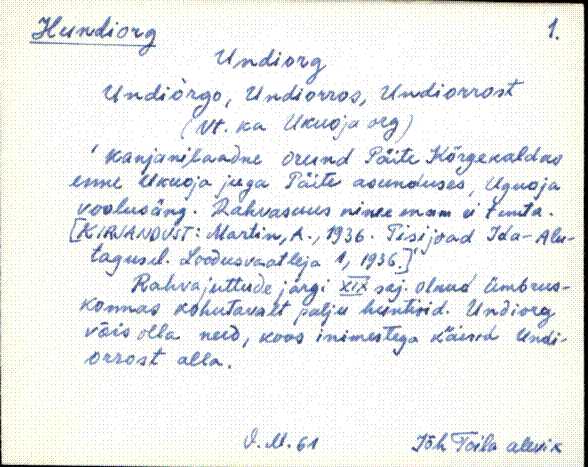 Hundiorg 1.
Undiorg
Undiòrgo, Undiorros, Undiorrost
(Vt. ka Ukuoja org)
' Kanjonilaadne orund Päite Kõrgekaldas
enne Ukuoja juga Päite asunduses, Uguoja
voolusäng. Rahvasuus nimee enam ei tunta.
[KIRJANDUST: Martin, A., 1936. Pisijoad Ida-Alu-
tagusel. Loodusvaatleja 1, 1936.]'
Rahvajuttude järgi XIX saj. olnud ümbrus-
konnas kohutavalt palju huntisid. Undiorg
võis olla neid, koos inimestega käisid Undi-
orrost alla.
O.M. 61 Jõh Toila alevik